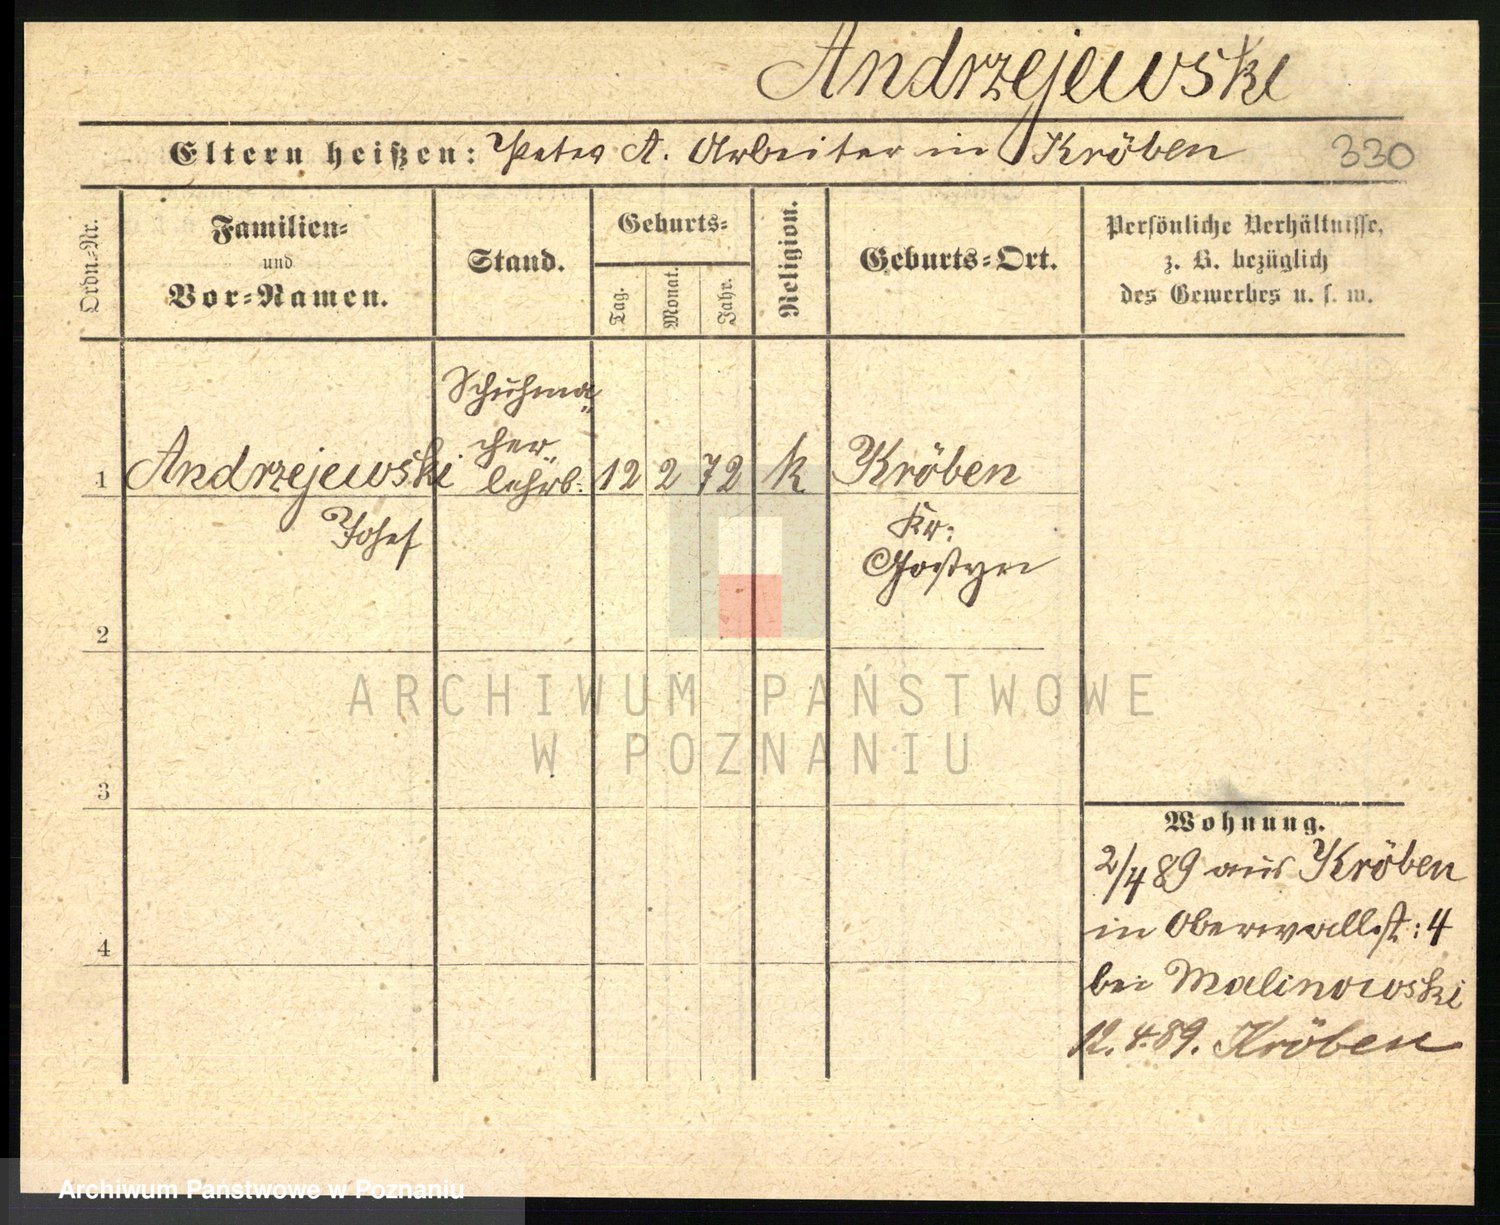 Andrzejewski
Eltern heißen: Peter A. Arbeiter in Kröben 330
Ordn.-Nr.
Familien-
und
Vor-Namen.
Stand.
Geburts-
Tag.
Monat.
Jahr.
Religion.
Geburts-Ort.
Persönliche Verhältnisse,
z. B. bezüglich
des Gewerbes u. s. w.
Schuhma
cher
1 Andrzejewski lehrl. 12 2 72 k Kröben
Josef
Kr:
Gostyn
2
3
4
Wohnung.
2/4 89 aus Kröben
in Oberwallst: 4
bei Malinowski
12.4.89. Kröben
ARCHIWUM PAŃSTWOWE
W POZNANIU
Archiwum Państwowe w Poznaniu